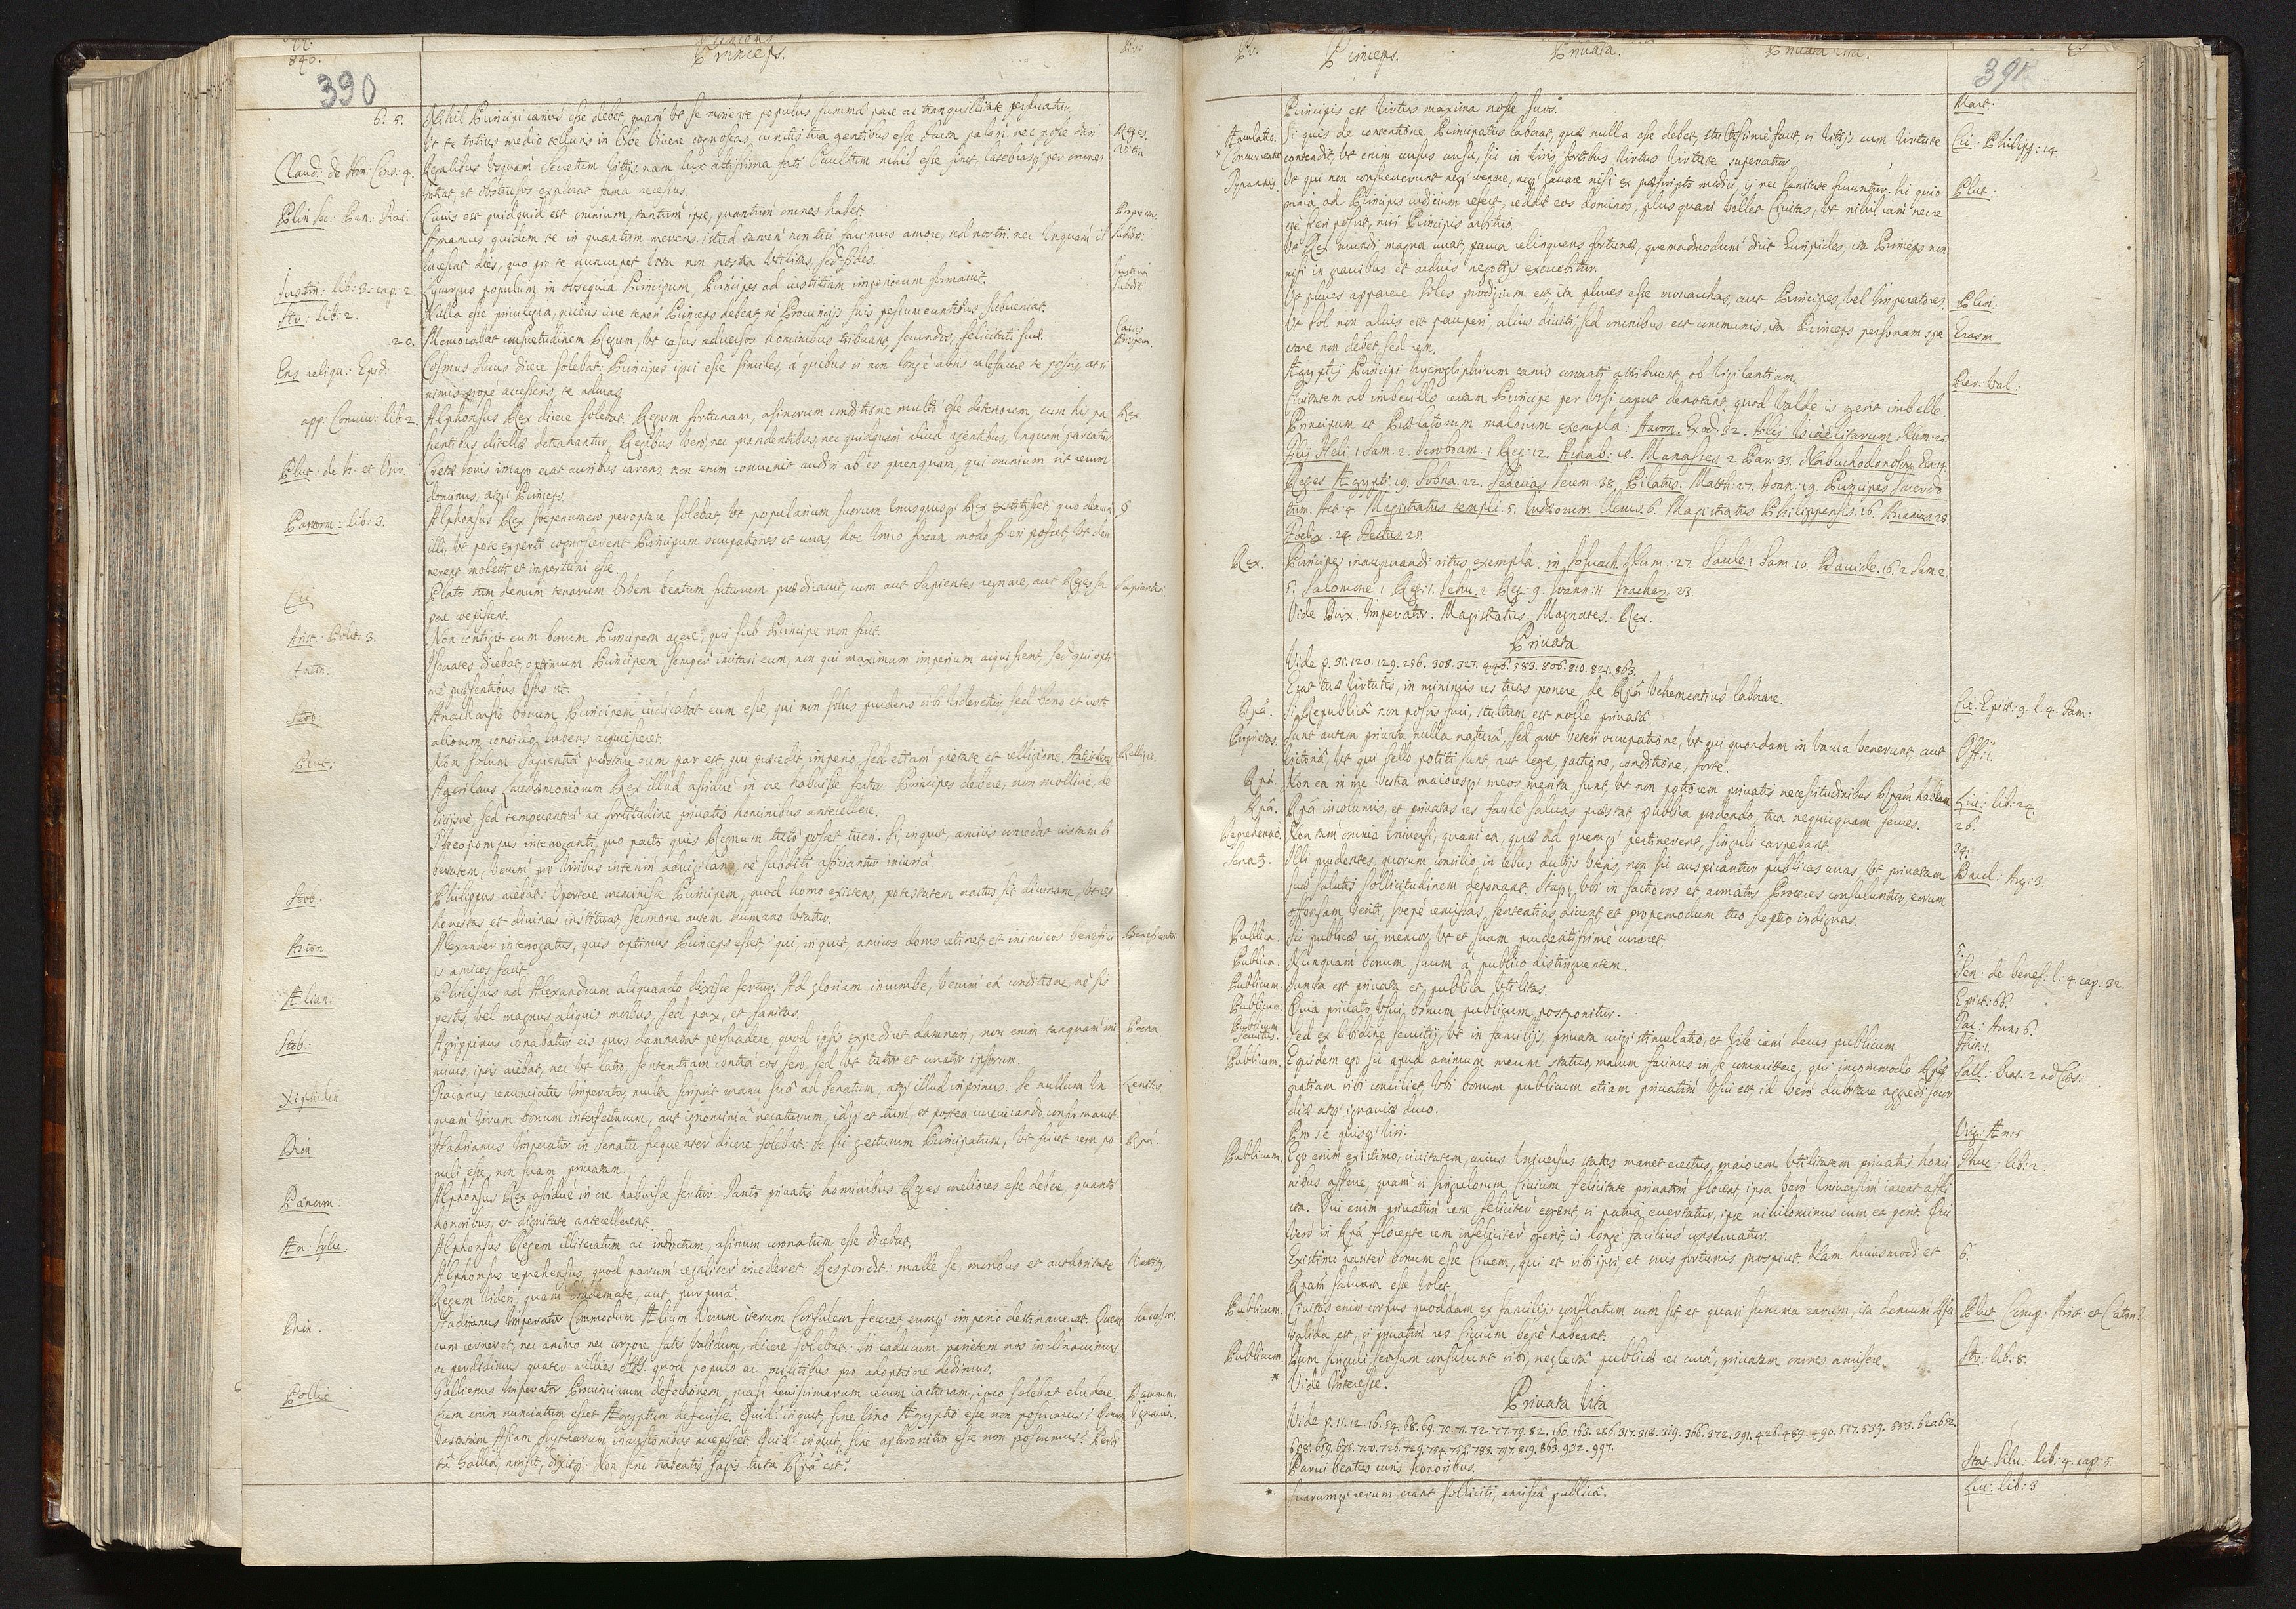 840.
Princeps.
Pr:
390
6. 5. Nihil Principi carius esse debet, quam ut se moriente populus summa pace ac tranquillitate perfruatur.
Ut te totius medio telluris in Orbe vivere cognoscas, cunctis tua gentibus esse facta palam: nec posse dari
Reges.
Claud: de Hon: Cons: 4. Regalibus usquam secretum vitijs: nam lux altissima fati occultum nihil esse sinit, latebrasq' per omnes
Vitia
intrat, et obstrusos explorat fama recessus.
Plin: Sec: Pan: Trai. Cuius est quidquid est omnium, tantum ipse, quantum omnes habet.
Amamus quidem te in quantum mereris: istud tamen non tui facimus amore, sed nostri: nec unquam il
Subditi
lucescat dies, quo pro te nuncupet vota non nostra utilitas, sed fides.
Justin: lib: 3: cap: 2. Lycurgus populum in obsequia Principum, Principes ad iustitiam imperiorum formavit.
Subditi
lib: 2. Nulla esse privilegia, quibus iure teneri Princeps debeat, ne Provincijs suis pessumeuntibus subveniat.
20. Memorabat consuetudinem Regum, ut casus adversos hominibus tribuant, secundos, felicitati suae.
Casus
Cosmus dicere solebat: Principes igni esse similes, a quibus si non longe abris calefacere te possis, at si
nimis prope accesseris, te aduras.
app: Conviv: lib 2. Alphonsus Rex dicere solebat: Regum fortunam, asinorum conditione multo esse deteriorem, cum his pa
Rex
bentibus clitellae detrahantur, Regibus vero nec prandentibus, nec quidquam aliud agentibus, unquam parcatur
Plut: de Is: et Osir. Cretae Iovis imago erat auribus carens, non enim convenit audire ab eo quenquam, qui omnium sit rerum
dominus, atq' Princeps.
Panorm: lib: 3. Alphonsus Rex saepenumero peroptare solebat, ut popularium suorum unusquisq' Rex extitisset, quo demum
illi, ut pote experti cognoscerent Principum occupationes et curas, hoc unico forsan modo fieri posset, ut desi
nerent molesti et importuni esse.
Cic Plato tum demum terrarum Orbem beatum futurum praedicavit, cum aut Sapientes regnare, aut Reges sa
Sapientia.
pere coepissent.
Arist: Polit: 3. Non contigit eum bonum Principem agere, qui sub Principe non fuit.
Anton. dicebat, optimum Principem semper imitari eum, non qui maximum imperium acquisierit, sed qui opti
me praesentibus usus sit.
Stob: Anacharsis bonum Principem iudicabat eum esse, qui non solus prudens sibi videretur, sed bono et recto
aliorum consilio lubens acquiesceret.
Plut: Non solum sapientia praestare eum par est, qui praesidet imperio, sed etiam pietate et religione.
Religio.
Agesilaus Lacedaemoniorum Rex illud assidue in ore habuisse fertur: Principes debere, non mollitie, de
licijsve sed temperantia ac fortitudine privatis hominibus antecellere.
Theopompus interroganti, quo pacto quis Regnum tuto posset tueri: Si, inquit, amicis concedat iustam li
bertatem, verum pro viribus interim advigilans, ne subditi afficiantur iniuria.
Stob: Philippus aiebat: Oportere meminisse Principem, quod homo existens, potestatem nactus sit divinam, ut res
honestas et divinas instituat, sermone autem humano utatur.
Anton Alexander interrogatus, quis optimus Princeps esset? qui, inquit, amicos donis retinet et inimicos benefici
Beneficentia
is amicos facit.
Aelian: Philiscus ad Alexandrum aliquando dixisse fertur: Ad gloriam incumbe, verum ea conditione, ne sis
pestis, vel magnus aliquis morbus, sed pax, et sanitas.
Stob: Agrippinus conabatur eis quos damnabat persuadere, quod ipsis expediret damnari, non enim tanquam ini
Poena
micus ipsis aiebat, nec ut latro, sententiam contra eos fero, sed ut tutor et curator ipsorum.
Xiphilin Traianus renunciatus Imperator, multa scripsit manu sua ad Senatum, atq' illud inprimis: Se nullum un
Lenitas
quam virum bonum interfecturum, aut ignominia notaturum, idq' et tum, et postea iureiurando confirmavit.
Dion Hadrianus Imperator in Senatu frequenter dicere solebat: Se sic gesturum Principatum, ut sciret rem po
Rpa:
puli esse, non suam privatam.
Panorm: Alphonsus Rex assidue in ore habuisse fertur: Tanto privatis hominibus Reges meliores esse debere, quanto
honoribus, et dignitate antecellerent.
Aen: Sylv. Alphonsus Regem illiteratum ac indoctum, asinum coronatum esse dicebat.
Alphonsus reprehensus, quod parum regaliter incederet: Respondit: malle se, moribus et authoritate
Vestis.
Regem videri, quam diademate, aut purpura.
Dion. Hadrianus Imperator Commodum Aelium Verum iterum Consulem fecerat eumq' imperio destinaverat. Quem
Successor.
cum cerneret, nec animo nec corpore satis validum, dicere solebat: In caducum parietem nos inclinavimus
ac perdidimus quater millies HSS. quod populo ac militibus pro adoptione dedimus.
Pollio Gallienus Imperator Provinciarum defectionem, quasi levissimarum rerum iacturam, ioco solebat eludere.
Damnum.
Cum enim nunciatum esset Aegyptum defecisse, Quid? inquit, sine lino Aegyptio esse non possumus? Quum
Ignavia.
vastatam Asiam Scytharum incursionibus accepisset, Quid? inquit, sine aphronitro esse non possumus? Perdi
ta Gallia, arrisit, dixitq': Non sine trabeatis sagis tuta Rpa est?
Pr.
Princeps.
Privata.
Privata vita.
391
Principis est virtus maxima nosse suos.
Mart:
Aemulatio. Si quis de contentione Principatus laborat, quae nulla esse debet, stultissime facit, si vitijs cum virtute
Cic: Philipp: 14.
contendit. Ut enim cursus cursu, sic in viris fortibus virtus virtute superatur.
Tyrannus. Ut qui non consueverunt neq' coenare, neq' lavare nisi ex praescripto medici, ij nec sanitate fruuntur: Sic qui
Plut:
omnia ad Principis iudicium refert, reddit eos dominos, plus quam vellet Civitas, ut nihil iam recte
fieri possit, nisi Principis arbitrio.
Ut Rex mundi magna curat, parva relinquens fortunae, quemadmodum dicit Euripides, ita Princeps non
nisi in gravibus et arduis negotijs exercebitur.
Ut plures apparere Soles prodigium est, ita plures esse monarchas, aut Principes, vel Imperatores.
Plin:
Ut Sol non alius est pauperi, alius diviti, sed omnibus est communis, ita Princeps personam spe
Erasm
ctare non debet, sed rem.
Aegyptij Principi hyeroglyphicum canis attribuunt, ob vigilantiam.
Pier: Val:
Civitatem ab imbecillo rectam Principe per Ursi caput denotant, quod valde is gerit imbelle.
Principum et Praelatorum malorum exempla: Aaron. Exod: 32. Filij Israelitarum Num: 25.
Filij Heli. 1 Sam. 2. Ieroboam. 1 Reg: 12. Achab: 18. Manasses 2 Par: 33. Nabuchodonosor.
Reges Aegypti: 19. Sobna. 22. Sedecias Ierem: 38. Pilatus. Matth: 27. Ioan: 19. Principes Sacerdo
tum. Act: 4. Magistratus templi. 5. Iudaeorum 6. Magistratus Philippensis. 16. Ananias. 23.
Foelix. 24. Festus 25.
Rex. Principes inaugurandi ritus, exempla: in Iosuah Num: 27. Saule 1 Sam. 10. Davide. 16. 2 Sam. 2.
5. Salomone 1 Reg: 1. Iehu. 2 Reg: 9. Ioachaz 23.
Vide Dux. Imperator. Magistratus. Magnates. Rex.
Privata
Vide p. 35. 120. 129. 256. 308. 327. 446. 583. 806. 810. 821. 863.
Erat tuae virtutis, in minimis res tuas ponere, de Rpa vehementius laborare.
Cic: Epist: 9. l. 4. Fam:
Rpa. Si Republica non possis frui, stultum est nolle privata.
Proprietas. Sunt autem privata nulla natura, sed aut veteri occupatione, ut qui quondam in vacua venerunt, aut
Off: 1.
victoria, ut qui bello potiti sunt, aut lege, pactione, conditione, sorte.
Rpa. Non ea in me vestra maioresq' meos merita sunt, ut non potiorem privatis necessitudinibus Rpam habeam
Liv: lib: 24.
Rpa. Rpa incolumis, et privatas res facile salvas praestat, publica prodendo, tua nequicquam serves.
26.
Non tam omnia universi, quam ea, quae ad quemq' pertinerent, singuli carpebant.
34.
Senat9. Illi prudentes, quorum consilio in rebus dubijs uteris, non sic auspicantur publicas curas, ut privatam
Barcl: Arg: 3.
suae salutis sollicitudinem deponant. Itaq', ubi in factiosos et armatos Proceres consuluntur, eorum
offensam veriti, saepe remissas sententias dicunt et propemodum tuo sceptro indignas.
Publica. Sic publicae rei memor, ut et suam prudentissime curaret.
5.
Publica. Nunquam bonum suum a publico distinguentem.
Sen: de benef: l: 4. cap: 32.
Publicum. Iuncta est privata et, publica utilitas.
Epist: 66.
Publicum. Quia privato usui, bonum publicum postponitur.
Tac: Ann: 6.
Publicum Sed ex libidine servitij, ut in familijs, privata cuiq' stimulatio, et vile iam decus publicum.
Servitus.
Hist: 1.
Publicum. Equidem ego sic apud animum meum statuo, malum facinus in se committere, qui incommodo Rpae
Sall: Orat: 2 ad Caes:
gratiam sibi conciliet, ubi bonum publicum etiam privatim usui est, id vero dubitare aggredi socor
diae atq' ignaviae duco.
Pro se quisq' viri.
Virg: Aen: 5
Publicum. Ego enim existimo, civitatem, cuius universus status manet erectus, maiorem utilitatem privatis homi
Thuc: lib: 2.
nibus afferre, quam si singulorum civium felicitate privatim floreat, ipsa vero universim iaceat affli
cta. Qui enim privatim rem feliciter gerit, si patria evertatur, ipse nihilominus cum ea perit. Qui
vero in Rpa florente rem infeliciter gerit, is longe facilius conservatur.
Existimo pariter bonum esse Civem, qui et sibi ipsi, et suis fortunis prospicit. Nam huiusmodi et
6.
Rpam salvam esse volet.
Publicum. Civitas enim corpus quoddam ex familijs conflatum cum sit, et quasi summa earum, ita demum Rpa
Plut Comp: Arist: et Caton:
valida est, si privatim res Civium bene habeant.
Publicum. Dum singuli seorsum consulunt sibi, neglecta publicae rei cura, privatam omnes amisere.
lib: 8.
* Vide Interesse.
Privata Vita
Vide p. 11. 12. 16. 54. 68. 69. 70. 71. 72. 77. 79. 82. 160. 163. 286. 317. 318. 319. 366. 372. 391. 426. 489. 490. 517. 539. 553.
658. 659. 675. 700. 726. 729. 754. 783. 797. 819. 863. 932. 997.
Parvi beatus ruris honoribus.
Stat. Silv: lib: 4. cap: 5.
*. Suarumq' rerum erant solliciti, amissa publica.
Liv: lib: 3